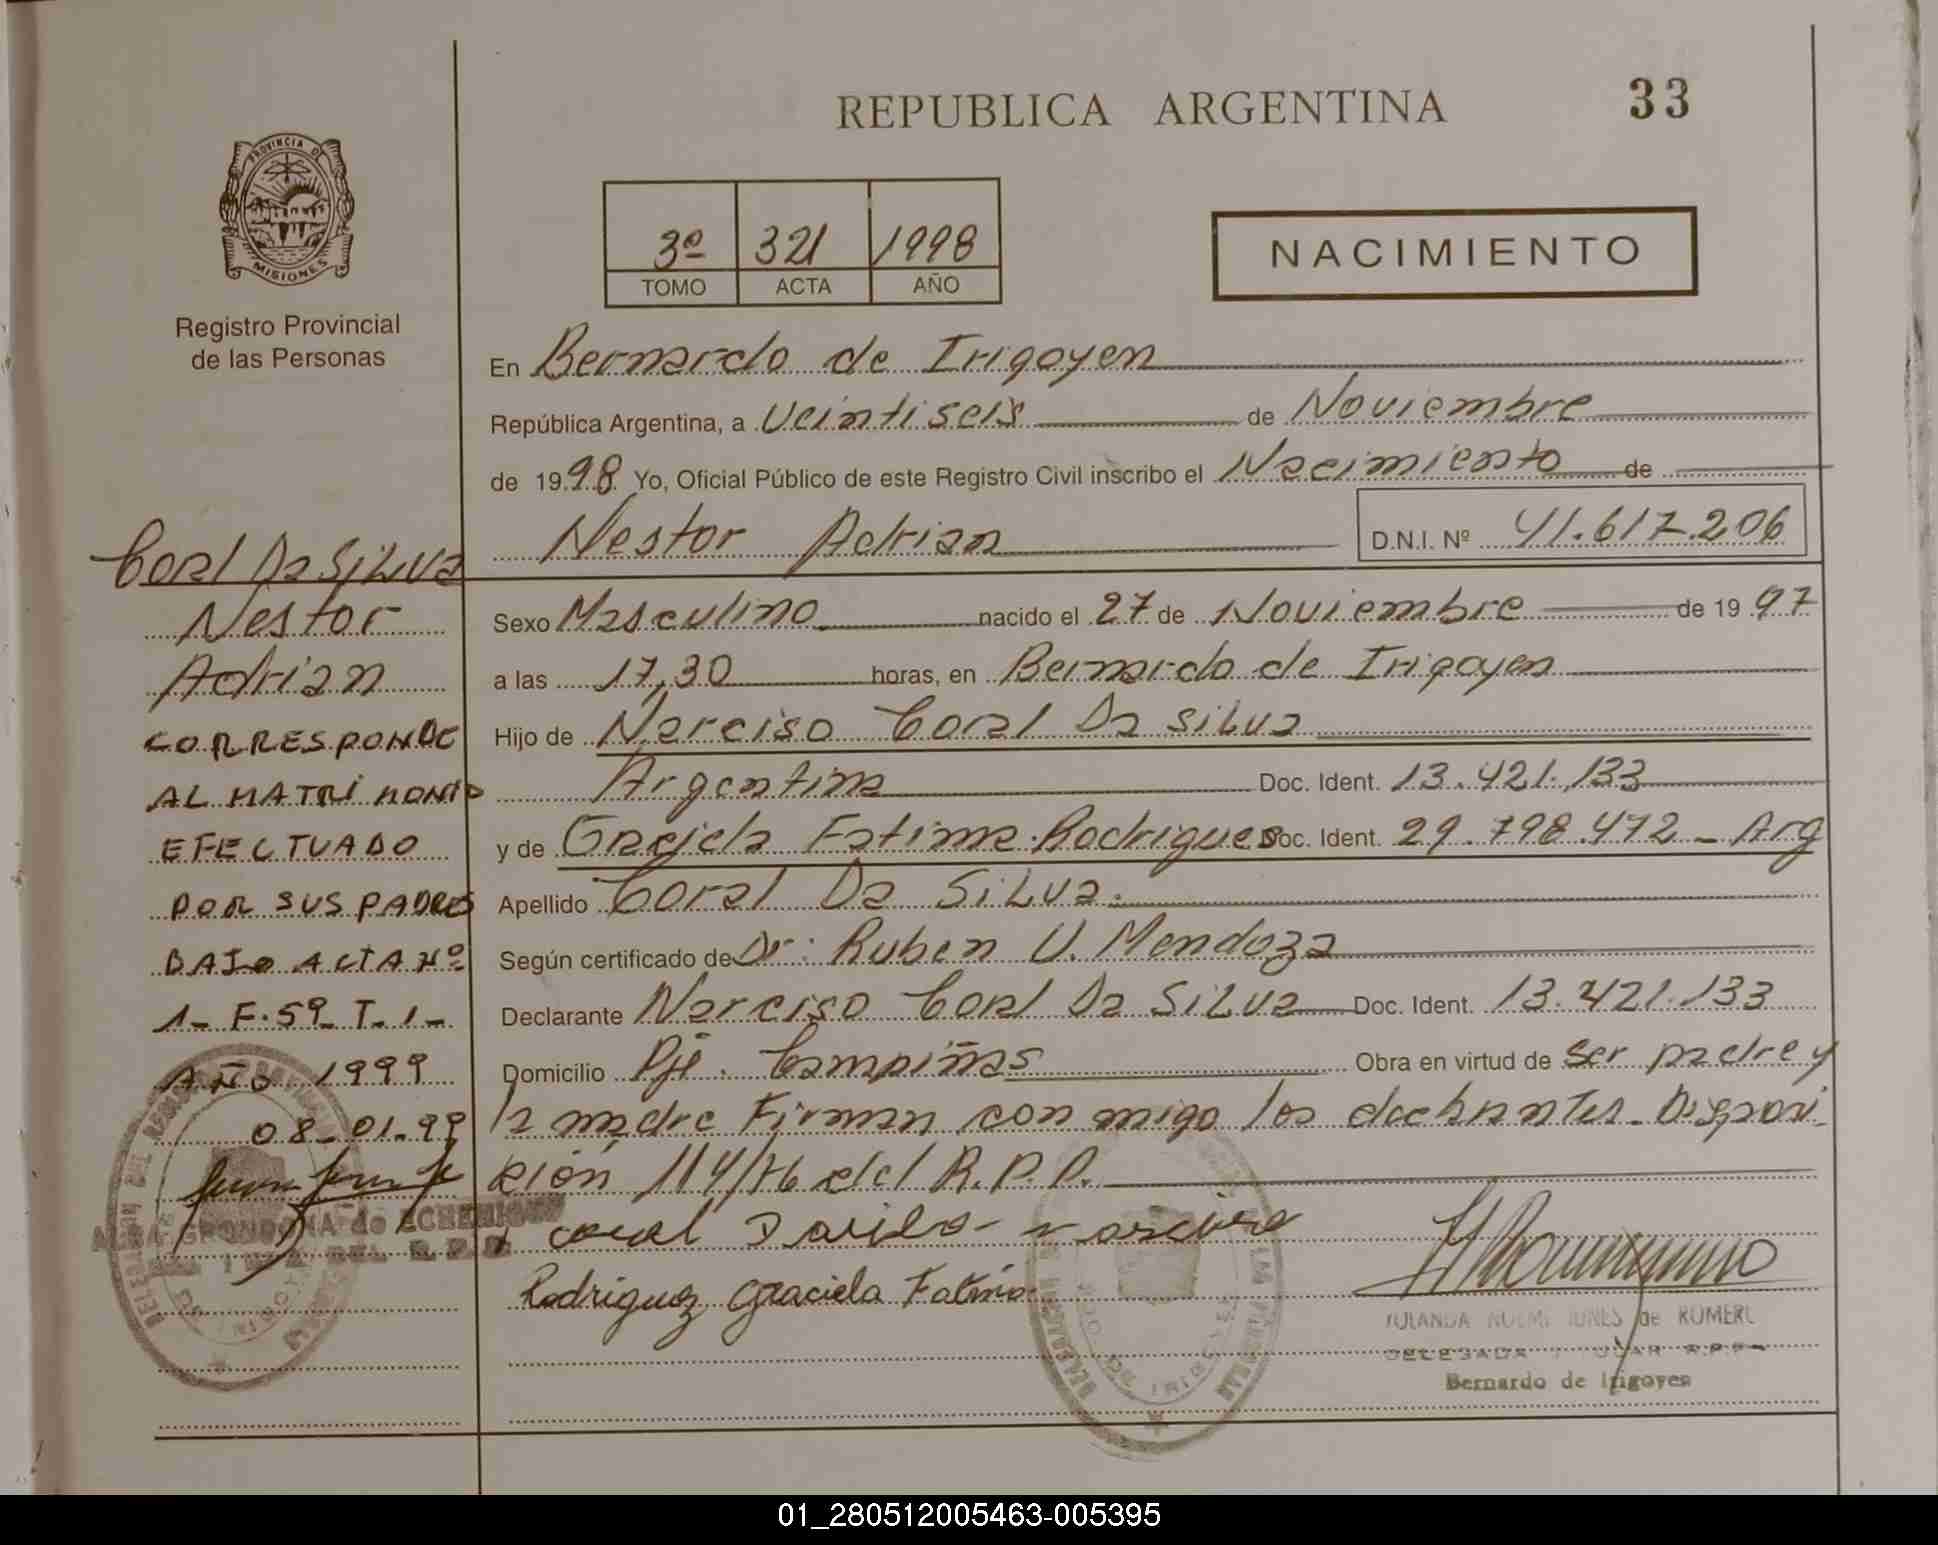 REPUBLICA ARGENTINA
33
PROVINCIA DE
MISIONES
Registro Provincial
de las Personas
3º 321 1998
TOMO ACTA AÑO
NACIMIENTO
En Bernardo de Irigoyen
República Argentina, a Veintiseis de Noviembre
de 1998 Yo, Oficial Público de este Registro Civil inscribo el Nacimiento de
Nestor Adrian D.N.I. Nº 41.617.206
Sexo Masculino nacido el 27 de Noviembre de 1997
a las 17,30 horas, en Bernardo de Irigoyen
Hijo de Narciso Coral Da Silva
Argentina Doc. Ident. 13.421.133
y de Graciela Fatima Rodrigues Doc. Ident. 29.798.472 - Arg
Apellido Coral Da Silva
Según certificado de Dr: Ruben V. Mendoza
Declarante Narciso Coral Da Silva Doc. Ident. 13.421.133
Domicilio Pje. Campiñas Obra en virtud de ser padre y
la madre Firman con migo los declarantes - Disposi
ción 114/76 del R.P.P.
Rodriguez Graciela Fatima
de ROMERO
DELEGADA
Bernardo de Irigoyen
Coral Da Silva
Nestor
Adrian
CORRESPONDE
AL MATRIMONIO
EFECTUADO
POR SUS PADRES
BAJO ACTA Nº
1- F.59- T.1-
AÑO 1999
08-01-99
01_280512005463-005395